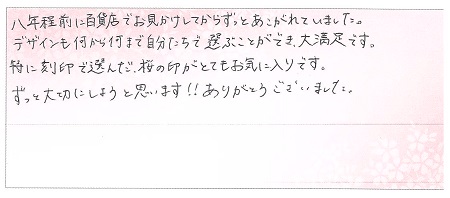 八年程前に百貨店でお見かけしてからずっとあこがれていました。
デザインも何から何まで自分たちで選ぶことができ、大満足です。
特に刻印で選んだ、桜の印がとてもお気に入りです。
ずっと大切にしようと思います!!ありがとうございました。